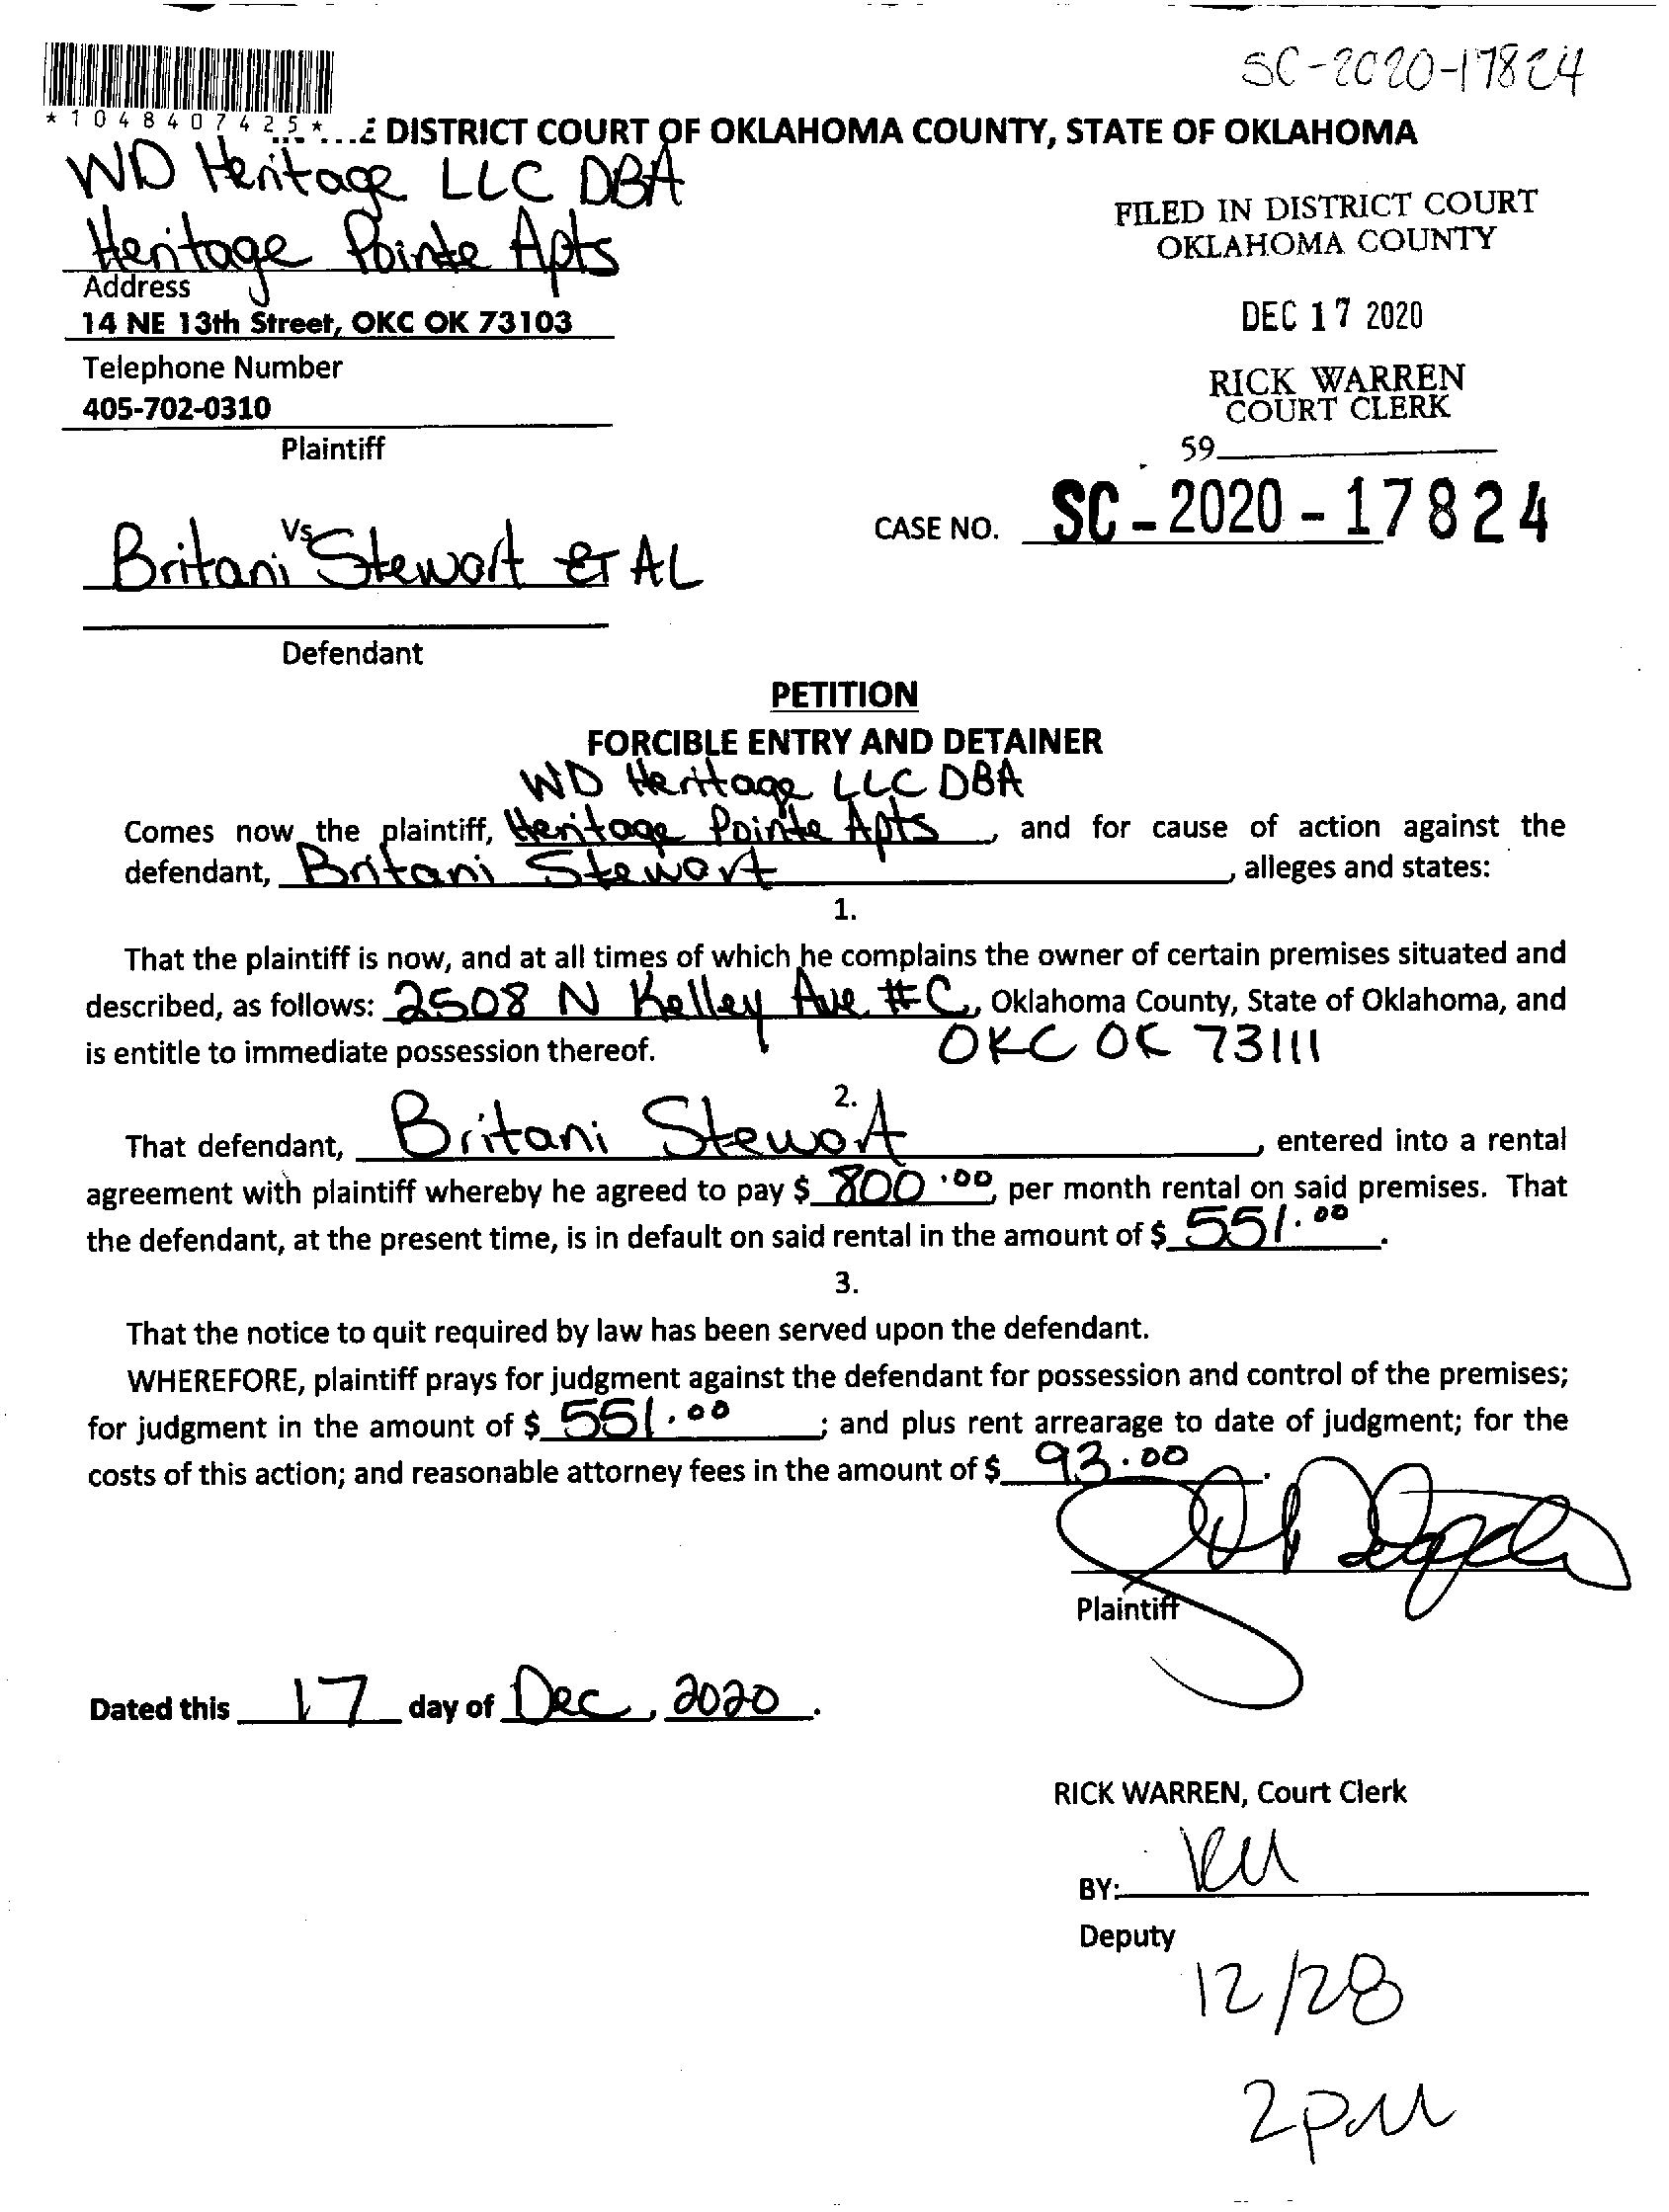 SC-2020-17824
*1048407425*
DISTRICT COURT OF OKLAHOMA COUNTY, STATE OF OKLAHOMA
WD Heritage LLC DBA
Heritage Pointe Apts
Address
14 NE 13th Street, OKC OK 73103
Telephone Number
405-702-0310
Plaintiff
FILED IN DISTRICT COURT
OKLAHOMA COUNTY
DEC 17 2020
RICK WARREN
COURT CLERK
59
Vs
Britani Stewart Et AL
Defendant
CASE NO. SC-2020-17824
PETITION
FORCIBLE ENTRY AND DETAINER
WD Heritage LLC DBA
Comes now the plaintiff, Heritage Pointe Apts, and for cause of action against the
defendant, Britani Stewart, alleges and states:
1.
That the plaintiff is now, and at all times of which he complains the owner of certain premises situated and
described, as follows: 2508 N Kelley Ave #C, Oklahoma County, State of Oklahoma, and
is entitle to immediate possession thereof. OKC OK 73111
2.
That defendant, Britani Stewart, entered into a rental
agreement with plaintiff whereby he agreed to pay $ 800.00, per month rental on said premises. That
the defendant, at the present time, is in default on said rental in the amount of $ 551.00.
3.
That the notice to quit required by law has been served upon the defendant.
WHEREFORE, plaintiff prays for judgment against the defendant for possession and control of the premises;
for judgment in the amount of $ 551.00; and plus rent arrearage to date of judgment; for the
costs of this action; and reasonable attorney fees in the amount of $ 93.00.
Plaintiff
Dated this 17 day of Dec, 2020.
RICK WARREN, Court Clerk
BY:
Deputy
12/28
2pm